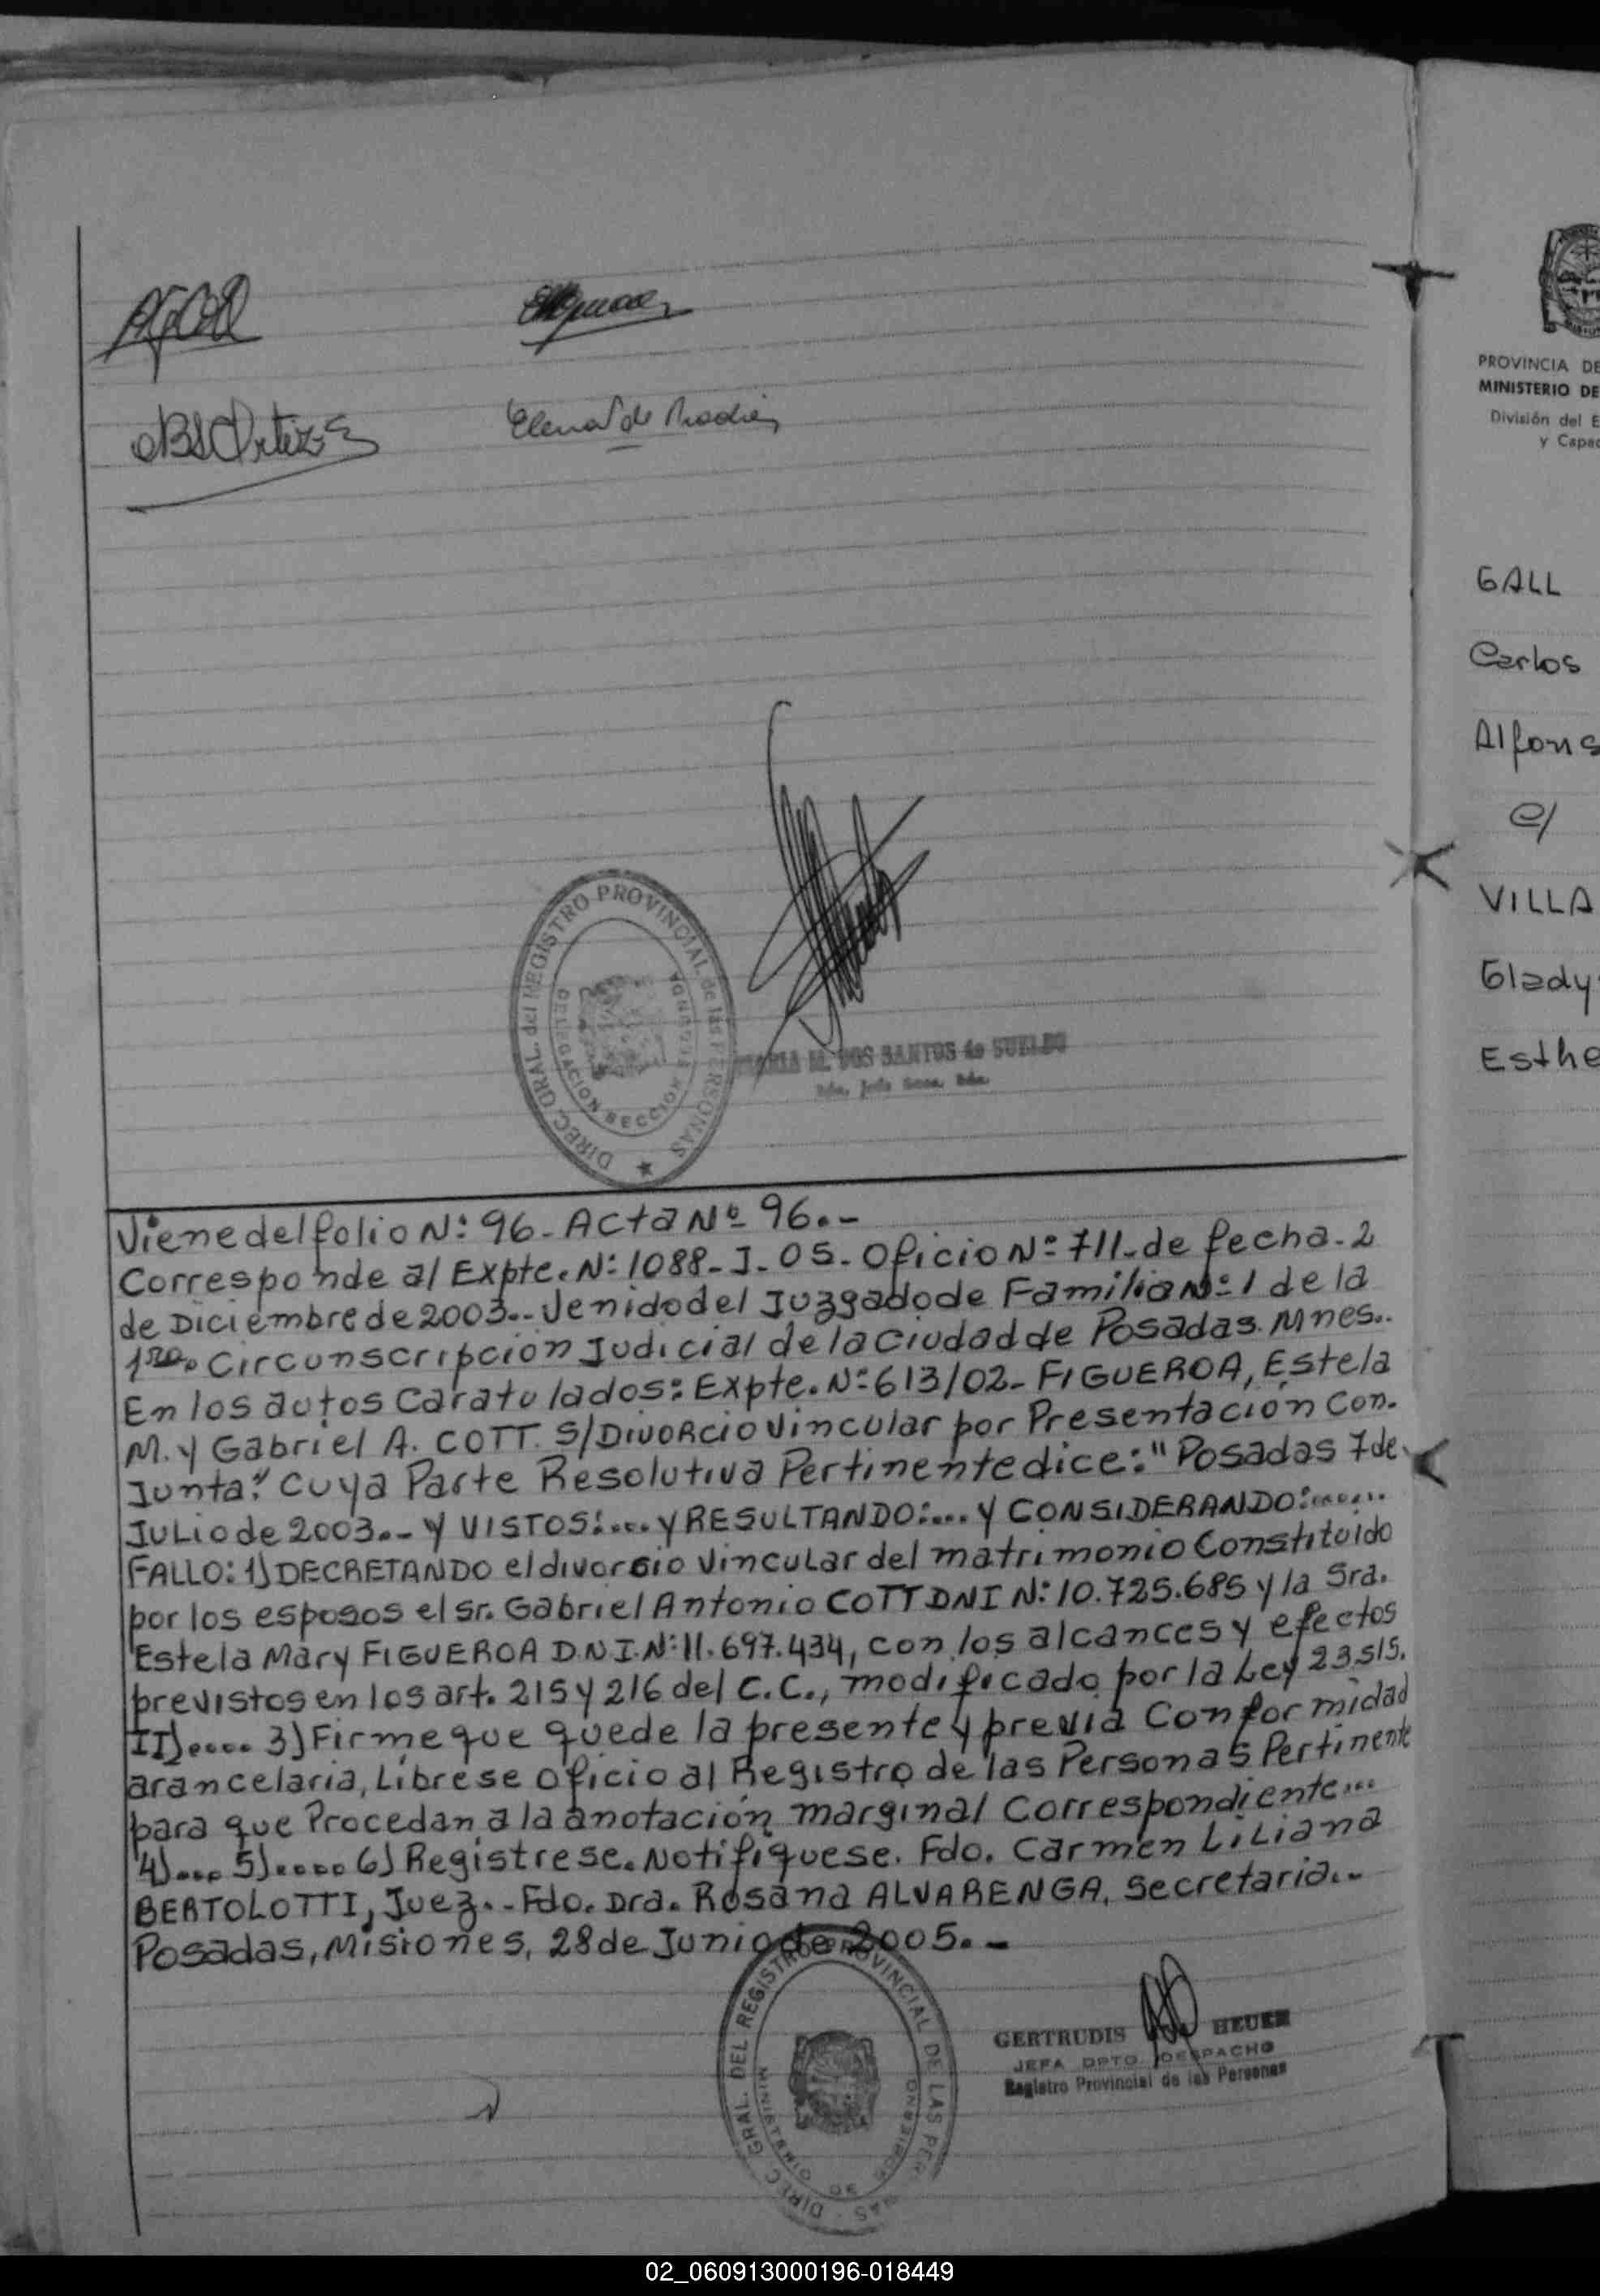 Elena de
DIREC. GRAL. del REGISTRO PROVINCIAL de las PERSONAS
DELEGACION SECCION SEGUNDA
MARIA M. DOS SANTOS de SUELDO
Viene del folio N: 96 - Acta Nº 96.-
Corresponde al Expte. N: 1088-J-05- Oficio Nº 711- de fecha - 2
de Diciembre de 2003.- Venido del Juzgado de Familia Nº 1 de la
1ra. Circunscripción Judicial de la Ciudad de Posadas. Mnes..
En los autos Caratulados: Expte. Nº 613/02- FIGUEROA, Estela
M. y Gabriel A. COTT. S/Divorcio Vincular por Presentación Con.
Junta." Cuya Parte Resolutiva Pertinente dice: "Posadas 7 de
Julio de 2003.- y VISTOS:.... y RESULTANDO:.... y CONSIDERANDO:......
FALLO: 1) DECRETANDO el divorcio vincular del matrimonio Constituido
por los esposos el Sr. Gabriel Antonio COTT DNI N: 10.725.685 y la Sra.
Estela Mary FIGUEROA D.N.I. N: 11.697.434, con los alcances y efectos
previstos en los art. 215 y 216 del C.C., modificado por la Ley 23.515.
II)..... 3) Firme que quede la presente y previa Conformidad
arancelaria, Líbrese oficio al Registro de las Personas Pertinente
para que Procedan a la anotación marginal Correspondiente...
4).... 5)..... 6) Regístrese. Notifíquese. Fdo. Carmen Liliana
BERTOLOTTI, Juez.- Fdo. Dra. Rosana ALVARENGA, Secretaria..
Posadas, Misiones, 28 de Junio de 2005.-
DIREC. GRAL. DEL REGISTRO PROVINCIAL DE LAS PER NAS
MINISTERIO DE GOBIERNO
GERTRUDIS HEUER
JEFA DPTO DESPACHO
Registro Provincial de las Personas
PROVINCIA DE
MINISTERIO DE
División del E
y Capac
GALL
Carlos
Alfons
c/
VILLA
Glady
Esthe
02_060913000196-018449